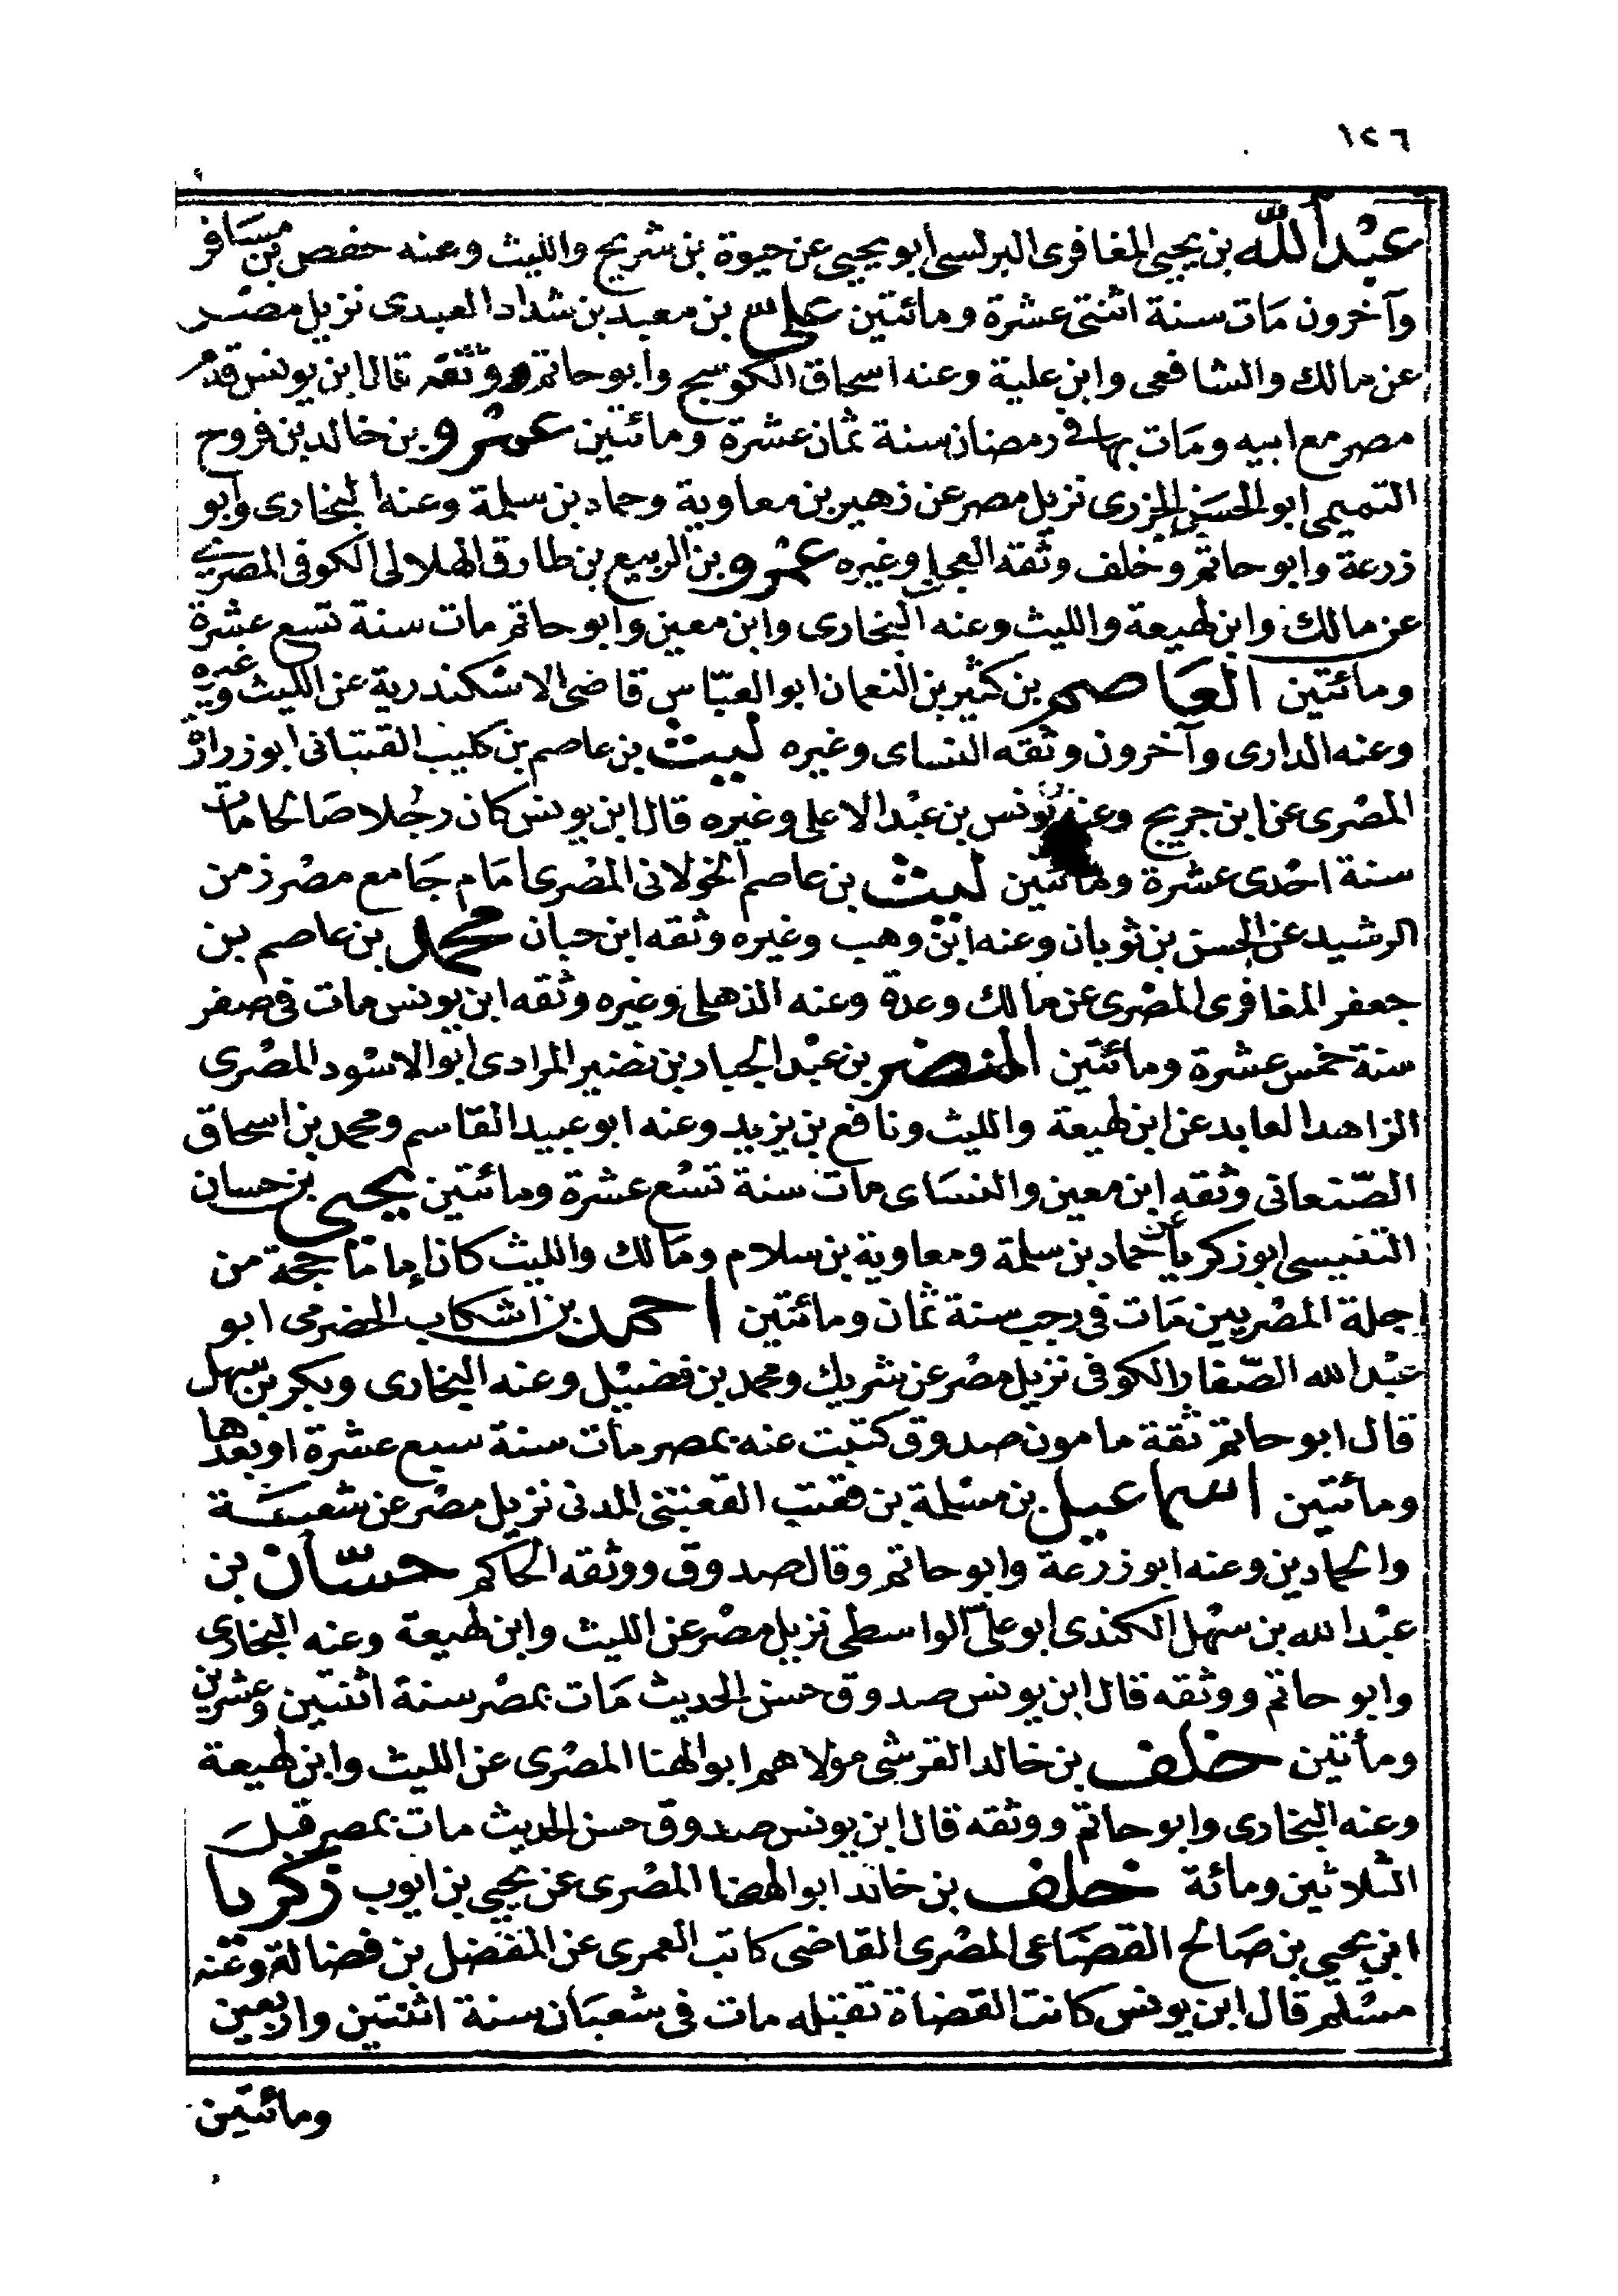 ١٢٦
عبد الله بن يحيى المغافرى البرلسى ابو يحيى عن حيوة بن شريح والليث وعنه حفص بن مسافر
وآخرون مات سنة اثنتى عشرة ومائتين على بن معبد بن شداد العبدى نزيل مصر
عن مالك والشافعى وابن علية وعنه اسحاق الكوسج وابو حاتم ووثقه قال ابن يونس قدم
مصر مع ابيه ومات بها فى رمضان سنة ثمان عشرة ومائتين عمرو بن خالد بن فروح
التميمى ابو الحسن الجزرى نزيل مصر عن زهير بن معاوية وحماد بن سلمة وعنه البخارى وابو
زرعة وابو حاتم وخلف وثقه العجلى وغيره عمرو بن الربيع بن طارق الهلالى الكوفى المصرى
عن مالك وابن لهيعة والليث وعنه البخارى وابن معين وابو حاتم مات سنة تسع عشرة
ومائتين العاصم بن كثير بن النعمان ابو العباس قاضى الاسكندرية عن الليث وغيره
وعنه الدارى وآخرون وثقه النساى وغيره ليث بن عاصم بن كليب القتبانى ابو زرارة
المصرى عن ابن جريج وعنه يونس بن عبد الاعلى وغيره قال ابن يونس كان رجلا صالحا مات
سنة احدى عشرة ومائتين ليث بن عاصم الخولانى المصرى امام جامع مصر زمن
الرشيد عن الحسن بن ثوبان وعنه ابن وهب وغيره وثقه ابن حبان محمد بن عاصم بن
جعفر المغافرى المصرى عن مالك وعدة وعنه الذهلى وغيره وثقه ابن يونس مات فى صفر
سنة خمس عشرة ومائتين النضر بن عبد الجبار بن نضير المرادى ابو الاسود المصرى
الزاهد العابد عن ابن لهيعة والليث ونافع بن يزيد وعنه ابو عبيد القاسم ومحمد بن اسحاق
الصنعانى وثقه ابن معين والنساى مات سنة تسع عشرة ومائتين يحيى بن حسان
التنيسى ابو زكريا عن حماد بن سلمة ومعاوية بن سلام ومالك والليث كان إماما حجة من
جلة المصريين مات فى رجب سنة ثمان ومائتين احمد بن اشكاب الحضرمى ابو
عبد الله الصفار الكوفى نزيل مصر عن شريك ومحمد بن فضيل وعنه البخارى وبكر بن سهل
قال ابو حاتم ثقة مامون صدوق كتبت عنه بمصر مات سنة سبع عشرة او بعدها
ومائتين اسماعيل بن مسلمة بن قعنب القعنبى المدنى نزيل مصر عن شعبة
والحمادين وعنه ابو زرعة وابو حاتم وقال صدوق ووثقه الحاكم حسان بن
عبد الله بن سهل الكندى ابو على الواسطى نزيل مصر عن الليث وابن لهيعة وعنه البخارى
وابو حاتم ووثقه قال ابن يونس صدوق حسن الحديث مات بمصر سنة اثنتين وعشرين
ومأتين خلف بن خالد القرشى مولاهم ابو الهنا المصرى عن الليث وابن لهيعة
وعنه البخارى وابو حاتم ووثقه قال ابن يونس صدوق حسن الحديث مات بمصر قبل
الثلاثين ومائة خلف بن خالد ابو الهضا المصرى عن يحيى بن ايوب زكريا
ابن يحيى بن صالح القضاعى المصرى القاضى كاتب العمرى عن المفضل بن فضالة وعنه
مسلم قال ابن يونس كانت القضاة تقبله مات فى شعبان سنة اثنتين واربعين
ومائتين